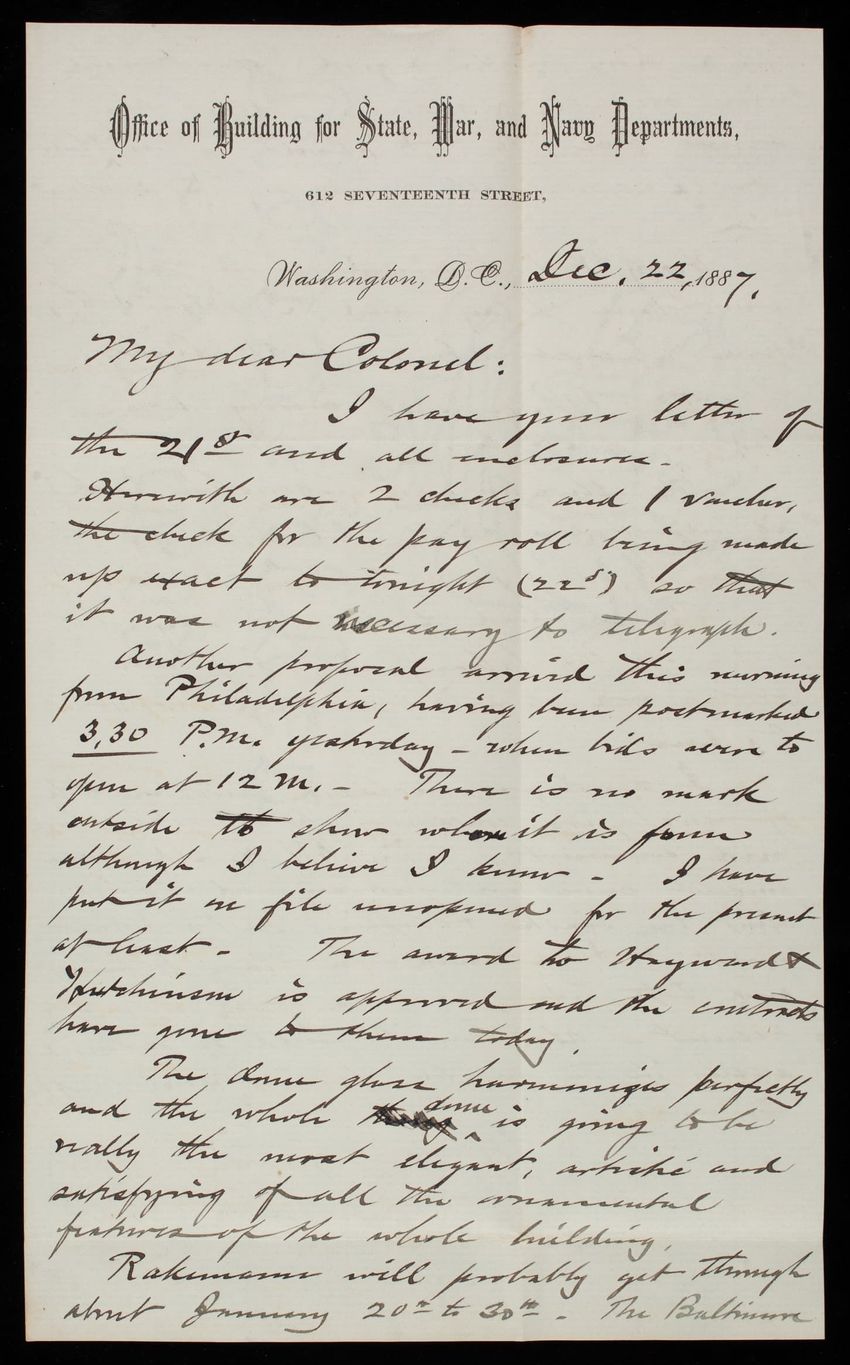 Office of Building for State, War, and Navy Departments,
612 SEVENTEENTH STREET,
Washington, D.C., Dec. 22, 1887.
My dear Colonel:
I have your letter of
the 21st and all inclosures.
Herewith are 2 checks and 1 voucher,
the check for the pay roll being made
up exact to tonight (22d) so that
it was not necessary to telegraph.
Another proposal arrived this morning
from Philadelphia, having been postmarked
3,30 P.M. yesterday - when bids were to
open at 12 M. - There is no mark
outside to show whom it is from
although I believe I know - I have
put it on file unopened for the present
at least - The award to Hayward &
Hutchinson is approved and the contracts
have gone to them today.
The dome glass harmonizes perfectly
and the whole dome is going to be
really the most elegant, artistic and
satisfying of all the ornamental
features of the whole building.
Rakemann will probably get through
about January 20th to 30th - The Baltimore